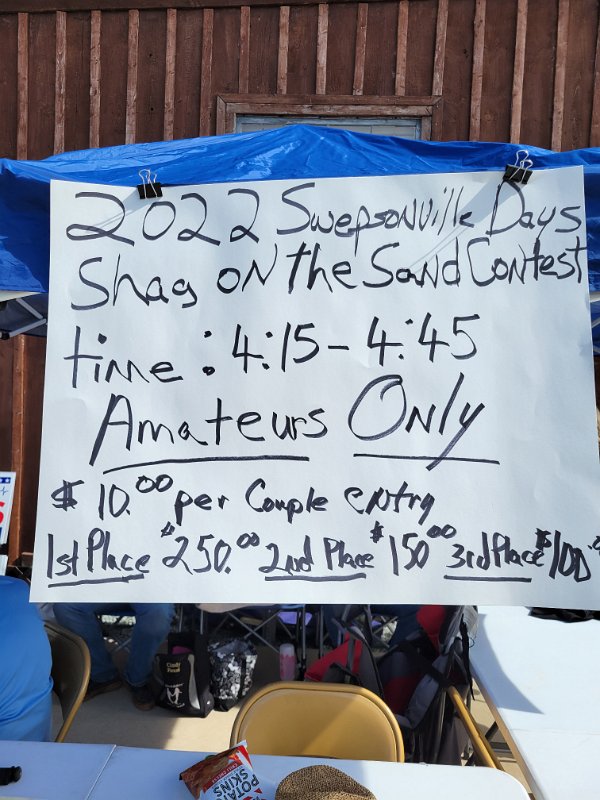 2022 Swepsonville Days
Shag ON the Sand Contest
time: 4:15 - 4:45
Amateurs Only
$10.00 per Couple entry
1st Place $250.00 2nd Place $150.00 3rd Place $100
POTATO
SKINS